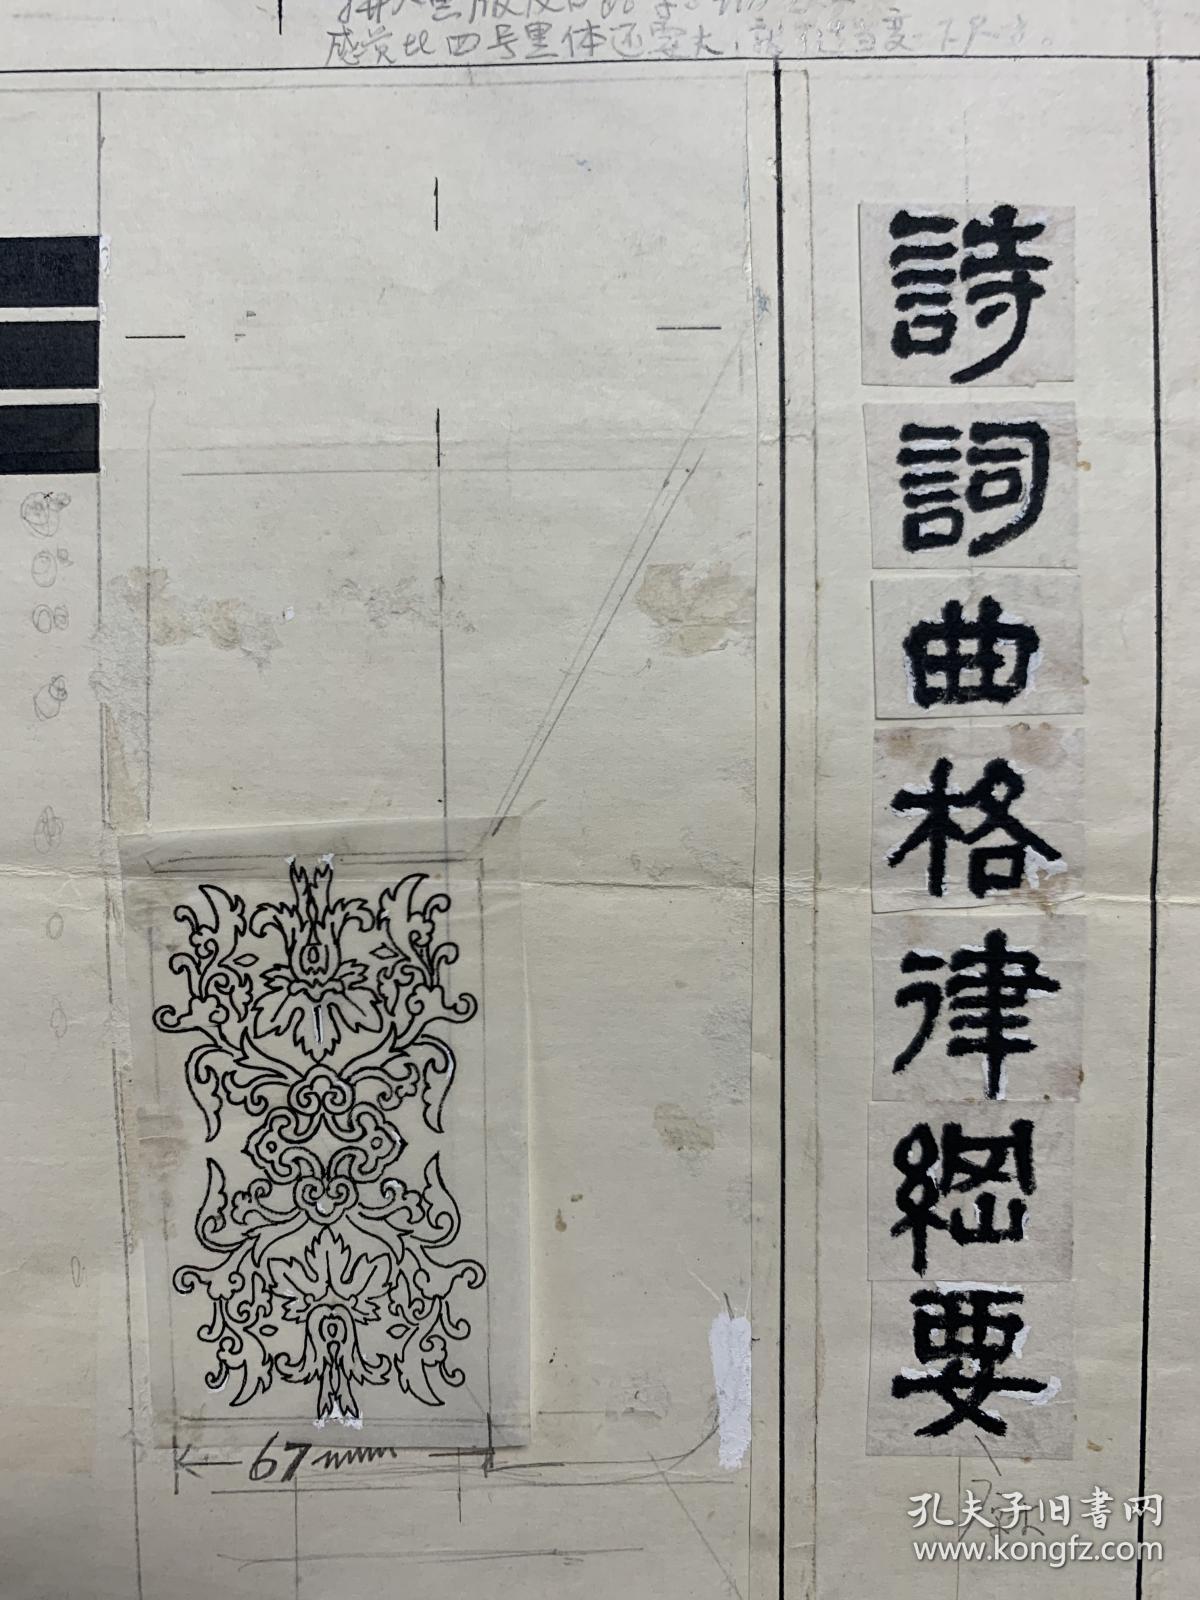 感觉比四号黑体还要大，
詩詞曲格律綱要
67mm
孔夫子旧書网
www.kongfz.com